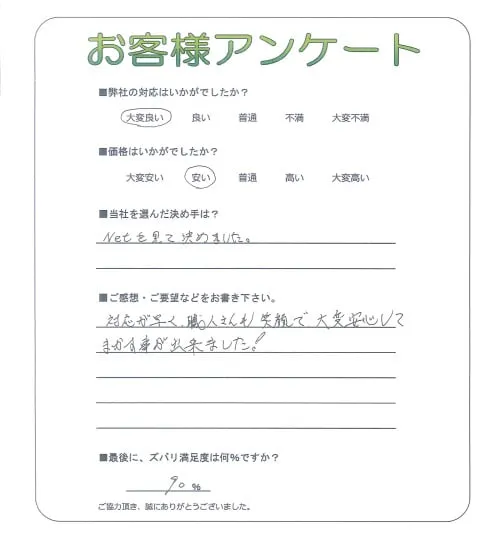 お客様アンケート
■弊社の対応はいかがでしたか？
大変良い 良い 普通 不満 大変不満
■価格はいかがでしたか？
大変安い 安い 普通 高い 大変高い
■当社を選んだ決め手は？
Netを見て決めました。
■ご感想・ご要望などをお書き下さい。
対応が早く、職人さんも笑顔で大変安心して
まかす事が出来ました！
■最後に、ズバリ満足度は何%ですか？
90%
ご協力頂き、誠にありがとうございました。